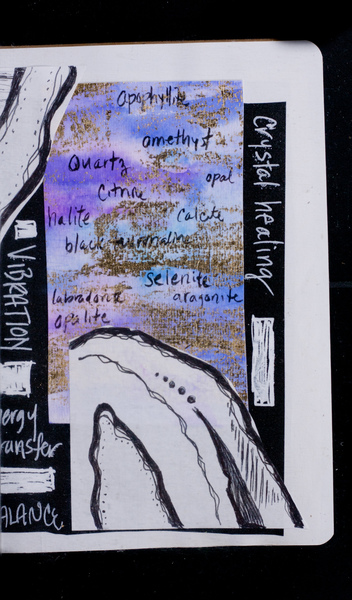 apophyllite
amethyst
Quartz
opal
Citrine
halite
Calcite
black tourmaline
selenite
labradorite
aragonite
opalite
Crystal healing
VIBRATION
ergy
ransfer
ALANCE